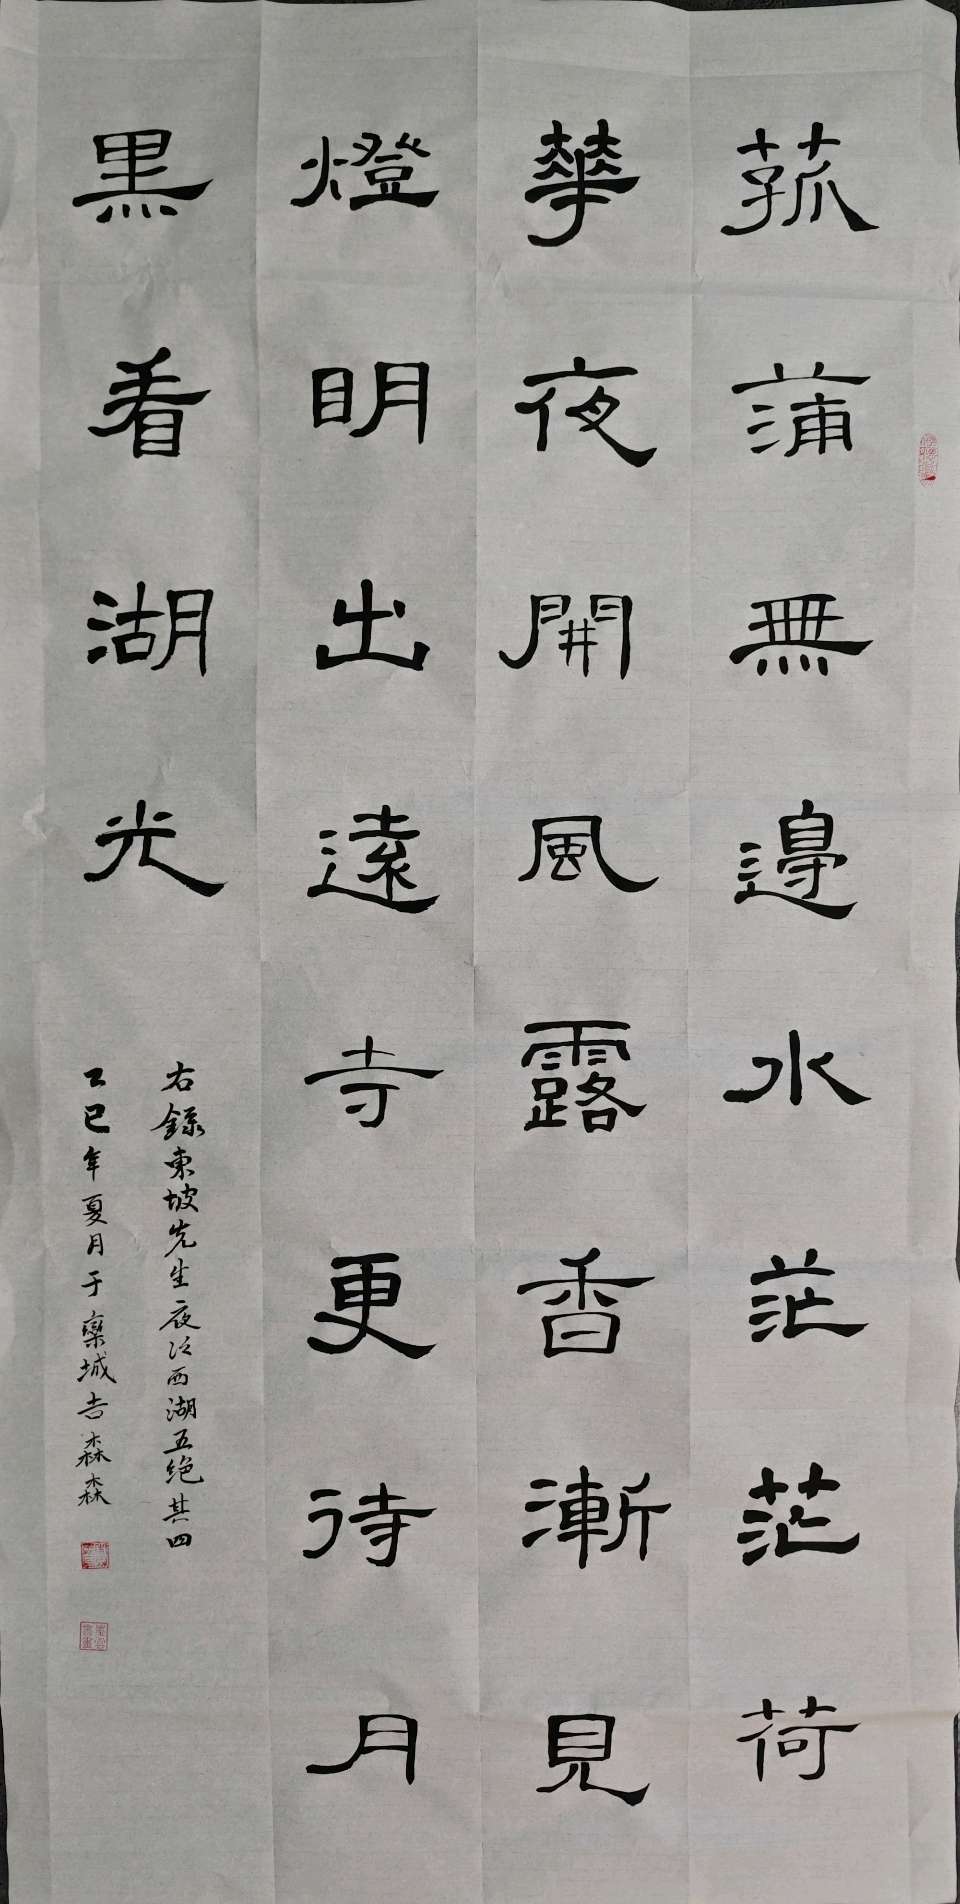 菰蒲無邊水茫茫荷
華夜開風露香漸見
燈明出遠寺更待月
黑看湖光
右錄東坡先生夜泛西湖五绝其四
乙巳年夏月于欒城吉森森